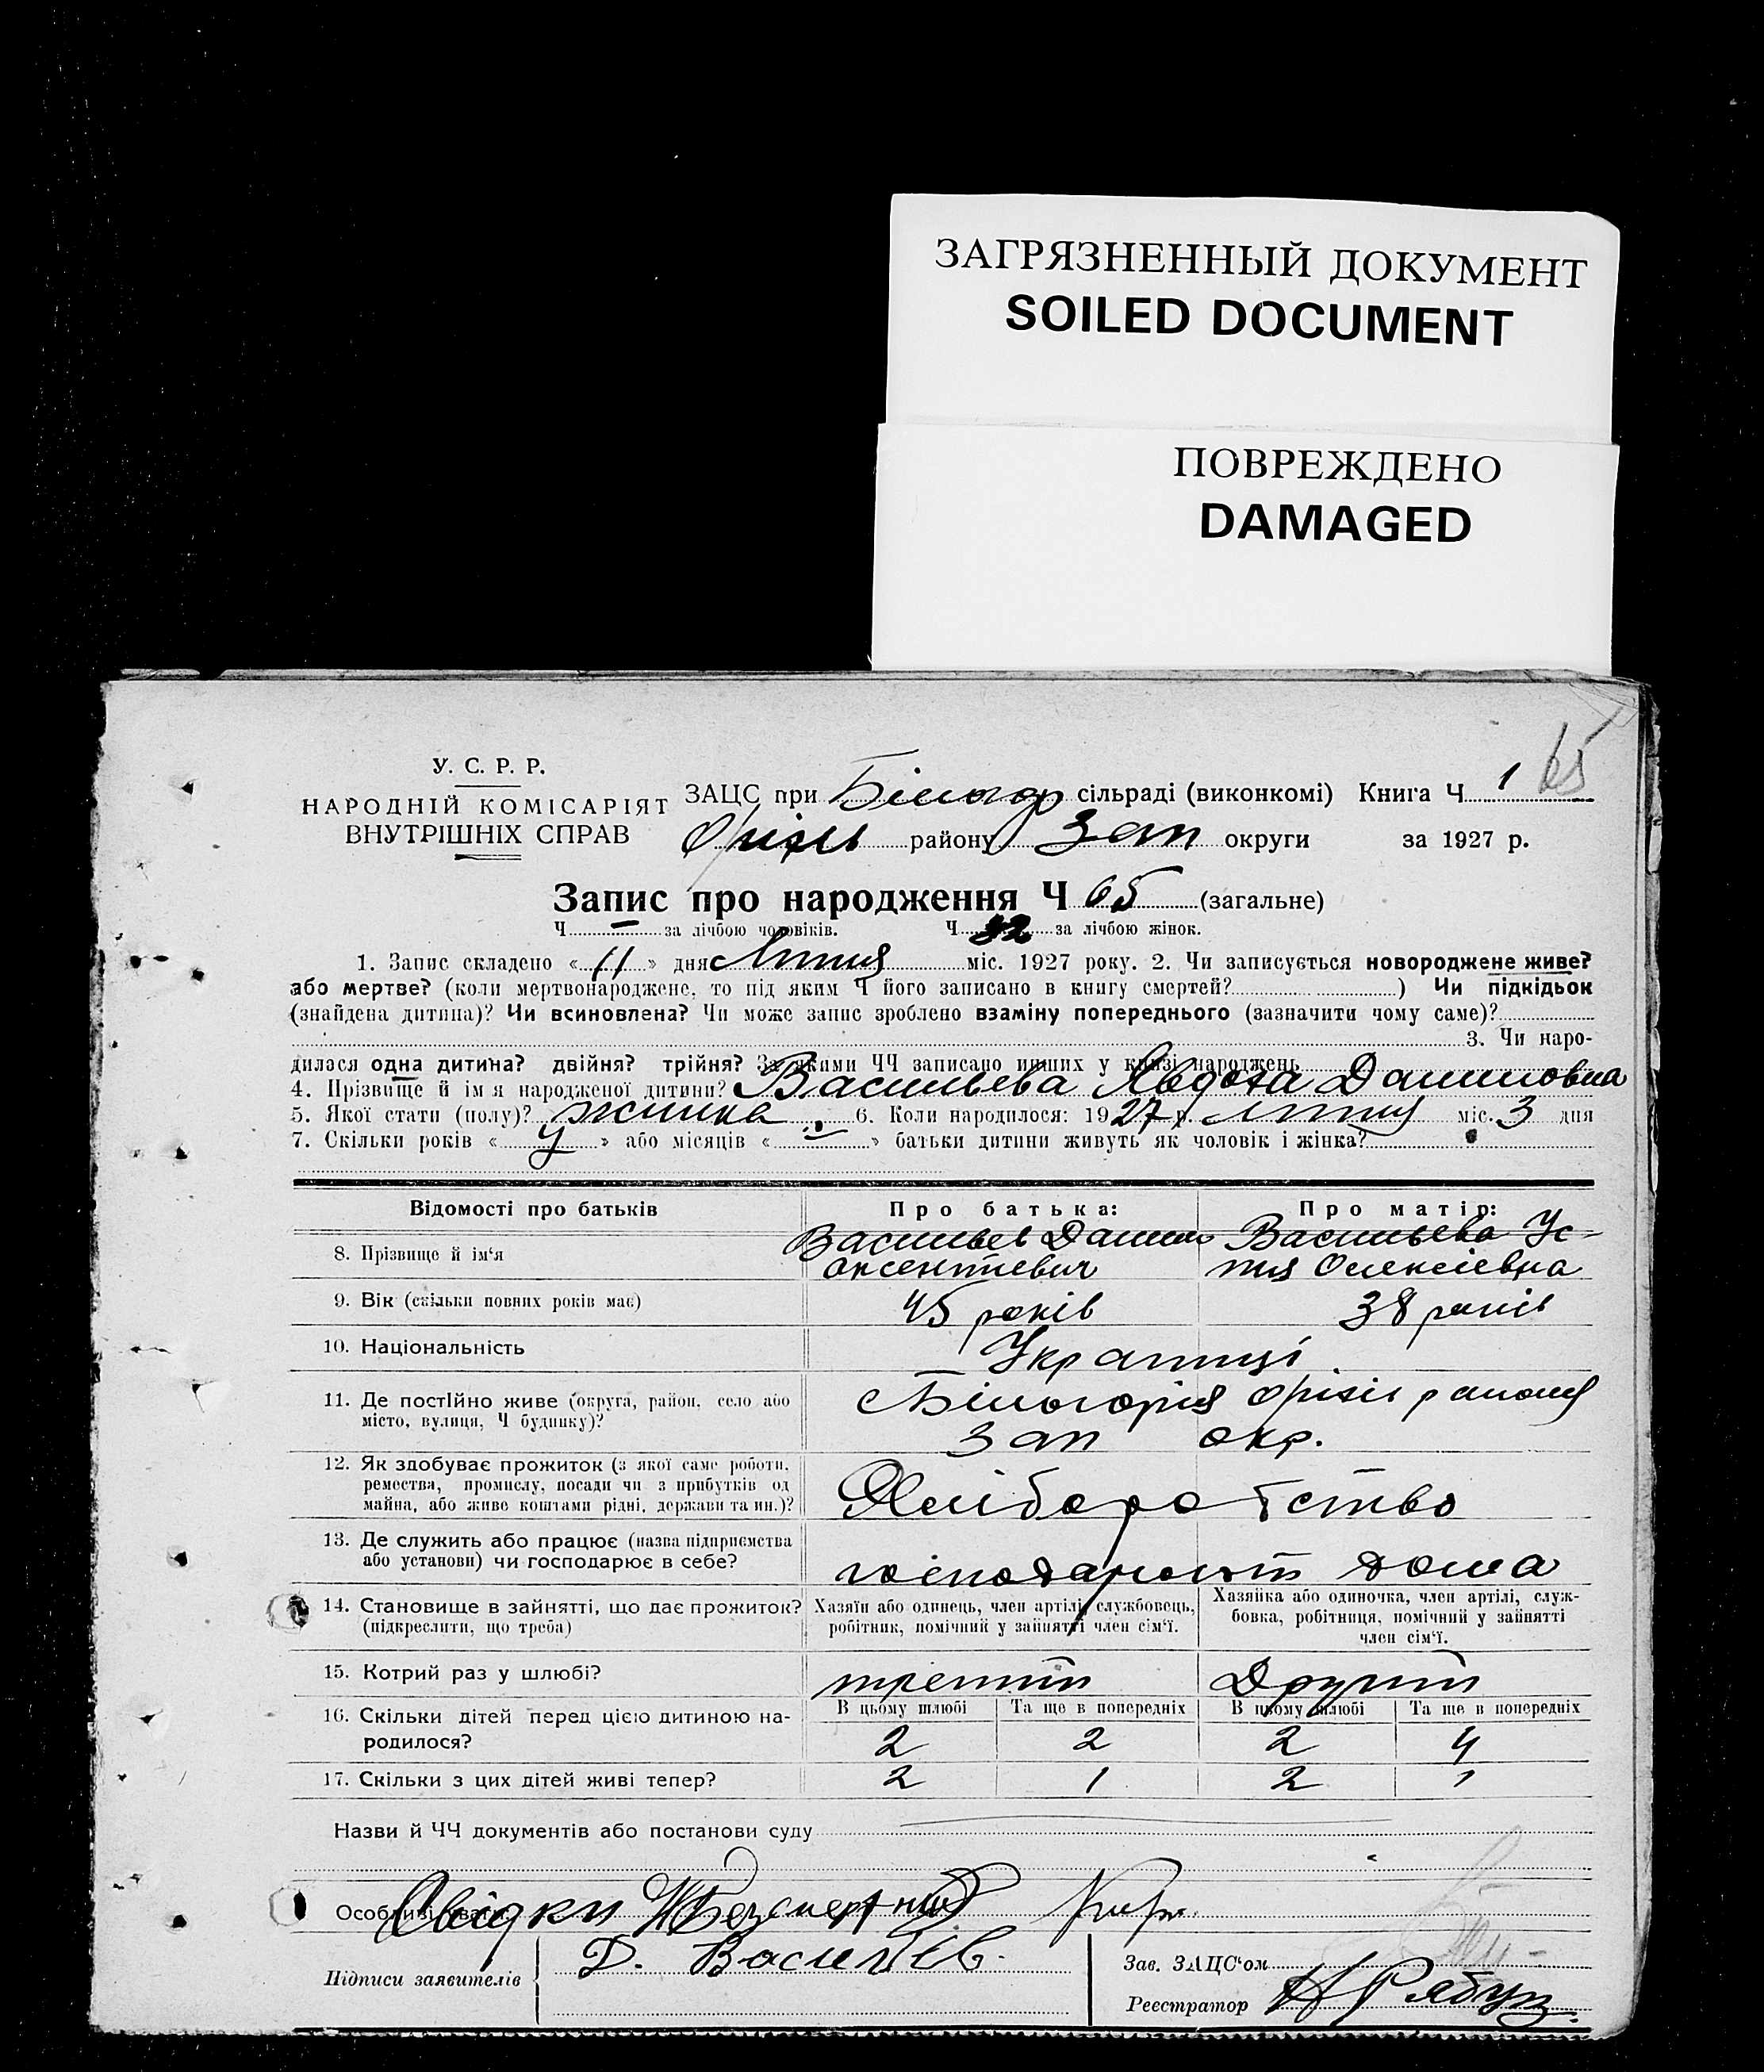 ЗАГРЯЗНЕННЫЙ ДОКУМЕНТ
SOILED DOCUMENT
ПОВРЕЖДЕНО
DAMAGED
65
У. С. Р. Р.
НАРОДНІЙ КОМІСАРІЯТ
ВНУТРІШНІХ СПРАВ
ЗАЦС при Білогор сільраді (виконкомі) Книга Ч 1
Оріхів району Зап округи за 1927 р.
Запис про народження Ч 65 (загальне)
Ч — за лічбою чоловіків. Ч 32 за лічбою жінок.
1. Запис складено « 11 » дня Липня міс. 1927 року. 2. Чи записується новороджене живе?
або мертве? (коли мертвонароджене, то під яким Ч його записано в книгу смертей? ) Чи підкідьок
(знайдена дитина)? Чи всиновлена? Чи може запис зроблено взаміну попереднього (зазначити чому саме)?
3. Чи наро-
дилася одна дитина? двійня? трійня? За якими ЧЧ записано инших у книзі народжень
4. Прізвище й ім я народженої дитини? Васильева Явдоха Даниловна
5. Якої стати (полу)? жинка 6. Коли народилося: 1927 р. Липня міс. 3 дня
7. Скільки років « 4 » або місяців « — » батьки дитини живуть як чоловік і жінка?
Відомості про батьків Про батька: Про матір:
8. Прізвище й ім‘я Васильев Данило Васильева Ус-
оксентиевич тия Олексіевна
9. Вік (скільки повних років має) 45 років 38 років
10. Національність Украинці
11. Де постійно живе (округа, район, село або Білогорія Оріхів району
місто, вулиця, Ч будинку)? Зап окр.
12. Як здобуває прожиток (з якої саме роботи,
ремества, промислу, посади чи з прибутків од Хліборобство
майна, або живе коштами рідні, держави та ин.)?
13. Де служить або працює (назва підприємства
або установи) чи господарює в себе? господарюют дома
14. Становище в зайнятті, що дає прожиток? Хазяїн або одинець, член артілі, службовець, Хазяйка або одиночка, член артілі, служ-
(підкреслити, що треба) робітник, помічний у зайнятті член сім‘ї. бовка, робітниця, помічний у зайнятті
член сім‘ї.
15. Котрий раз у шлюбі? третий Другий
16. Скільки дітей перед цією дитиною на- В цьому шлюбі Та ще в попередніх В цьому шлюбі Та ще в попередніх
родилося? 2 2 2 4
17. Скільки з цих дітей живі тепер? 2 1 2 1
Назви й ЧЧ документів або постанови суду
Особливі уваги: Свідки Безсмертний
Підписи заявителів Д. Васильєв. Зав. ЗАЦС‘ом
Реєстратор